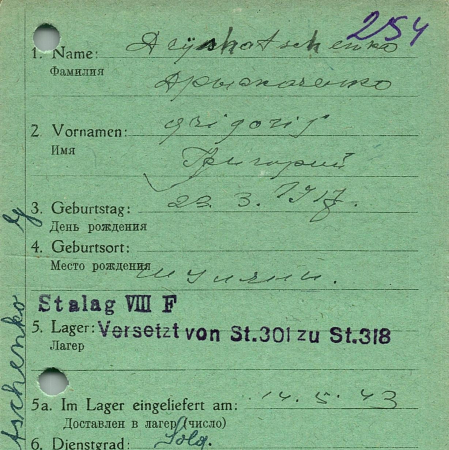 254
1. Name: Aryshotschenko
Фамилия Арысоченко
2 Vornamen: Grigorij
Имя Григорий
3. Geburtstag: 22. 3. 1917.
День рождения
4. Geburtsort:
Место рождения
Stalag VIII F
5. Lager: Versetzt von St.301 zu St.318
Лагерь
5a. Im Lager eingeliefert am: 14. 5. 43
Доставлен в лагерь (число)
6. Dienstgrad: Sold.
tschenko